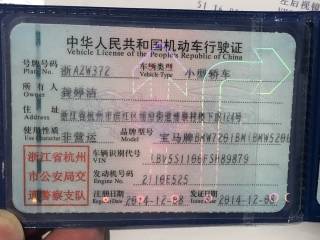 中华人民共和国机动车行驶证
Vehicle License of the People's Republic of China
号牌号码
Plate No.
浙A2W372
车辆类型
Vehicle Type
小型轿车
所有人
Owner
住址
Address
浙江省杭州市滨江区
使用性质
Use Character
非营运
品牌型号
Model
宝马牌BMW7201
浙江省杭州
市公安局交
通警察支队
车辆识别代号
VIN
LBV5S1106FSH89879
发动机号码
Engine No.
2110E525
注册日期
2014-12-08
发证日期
2014-12-08